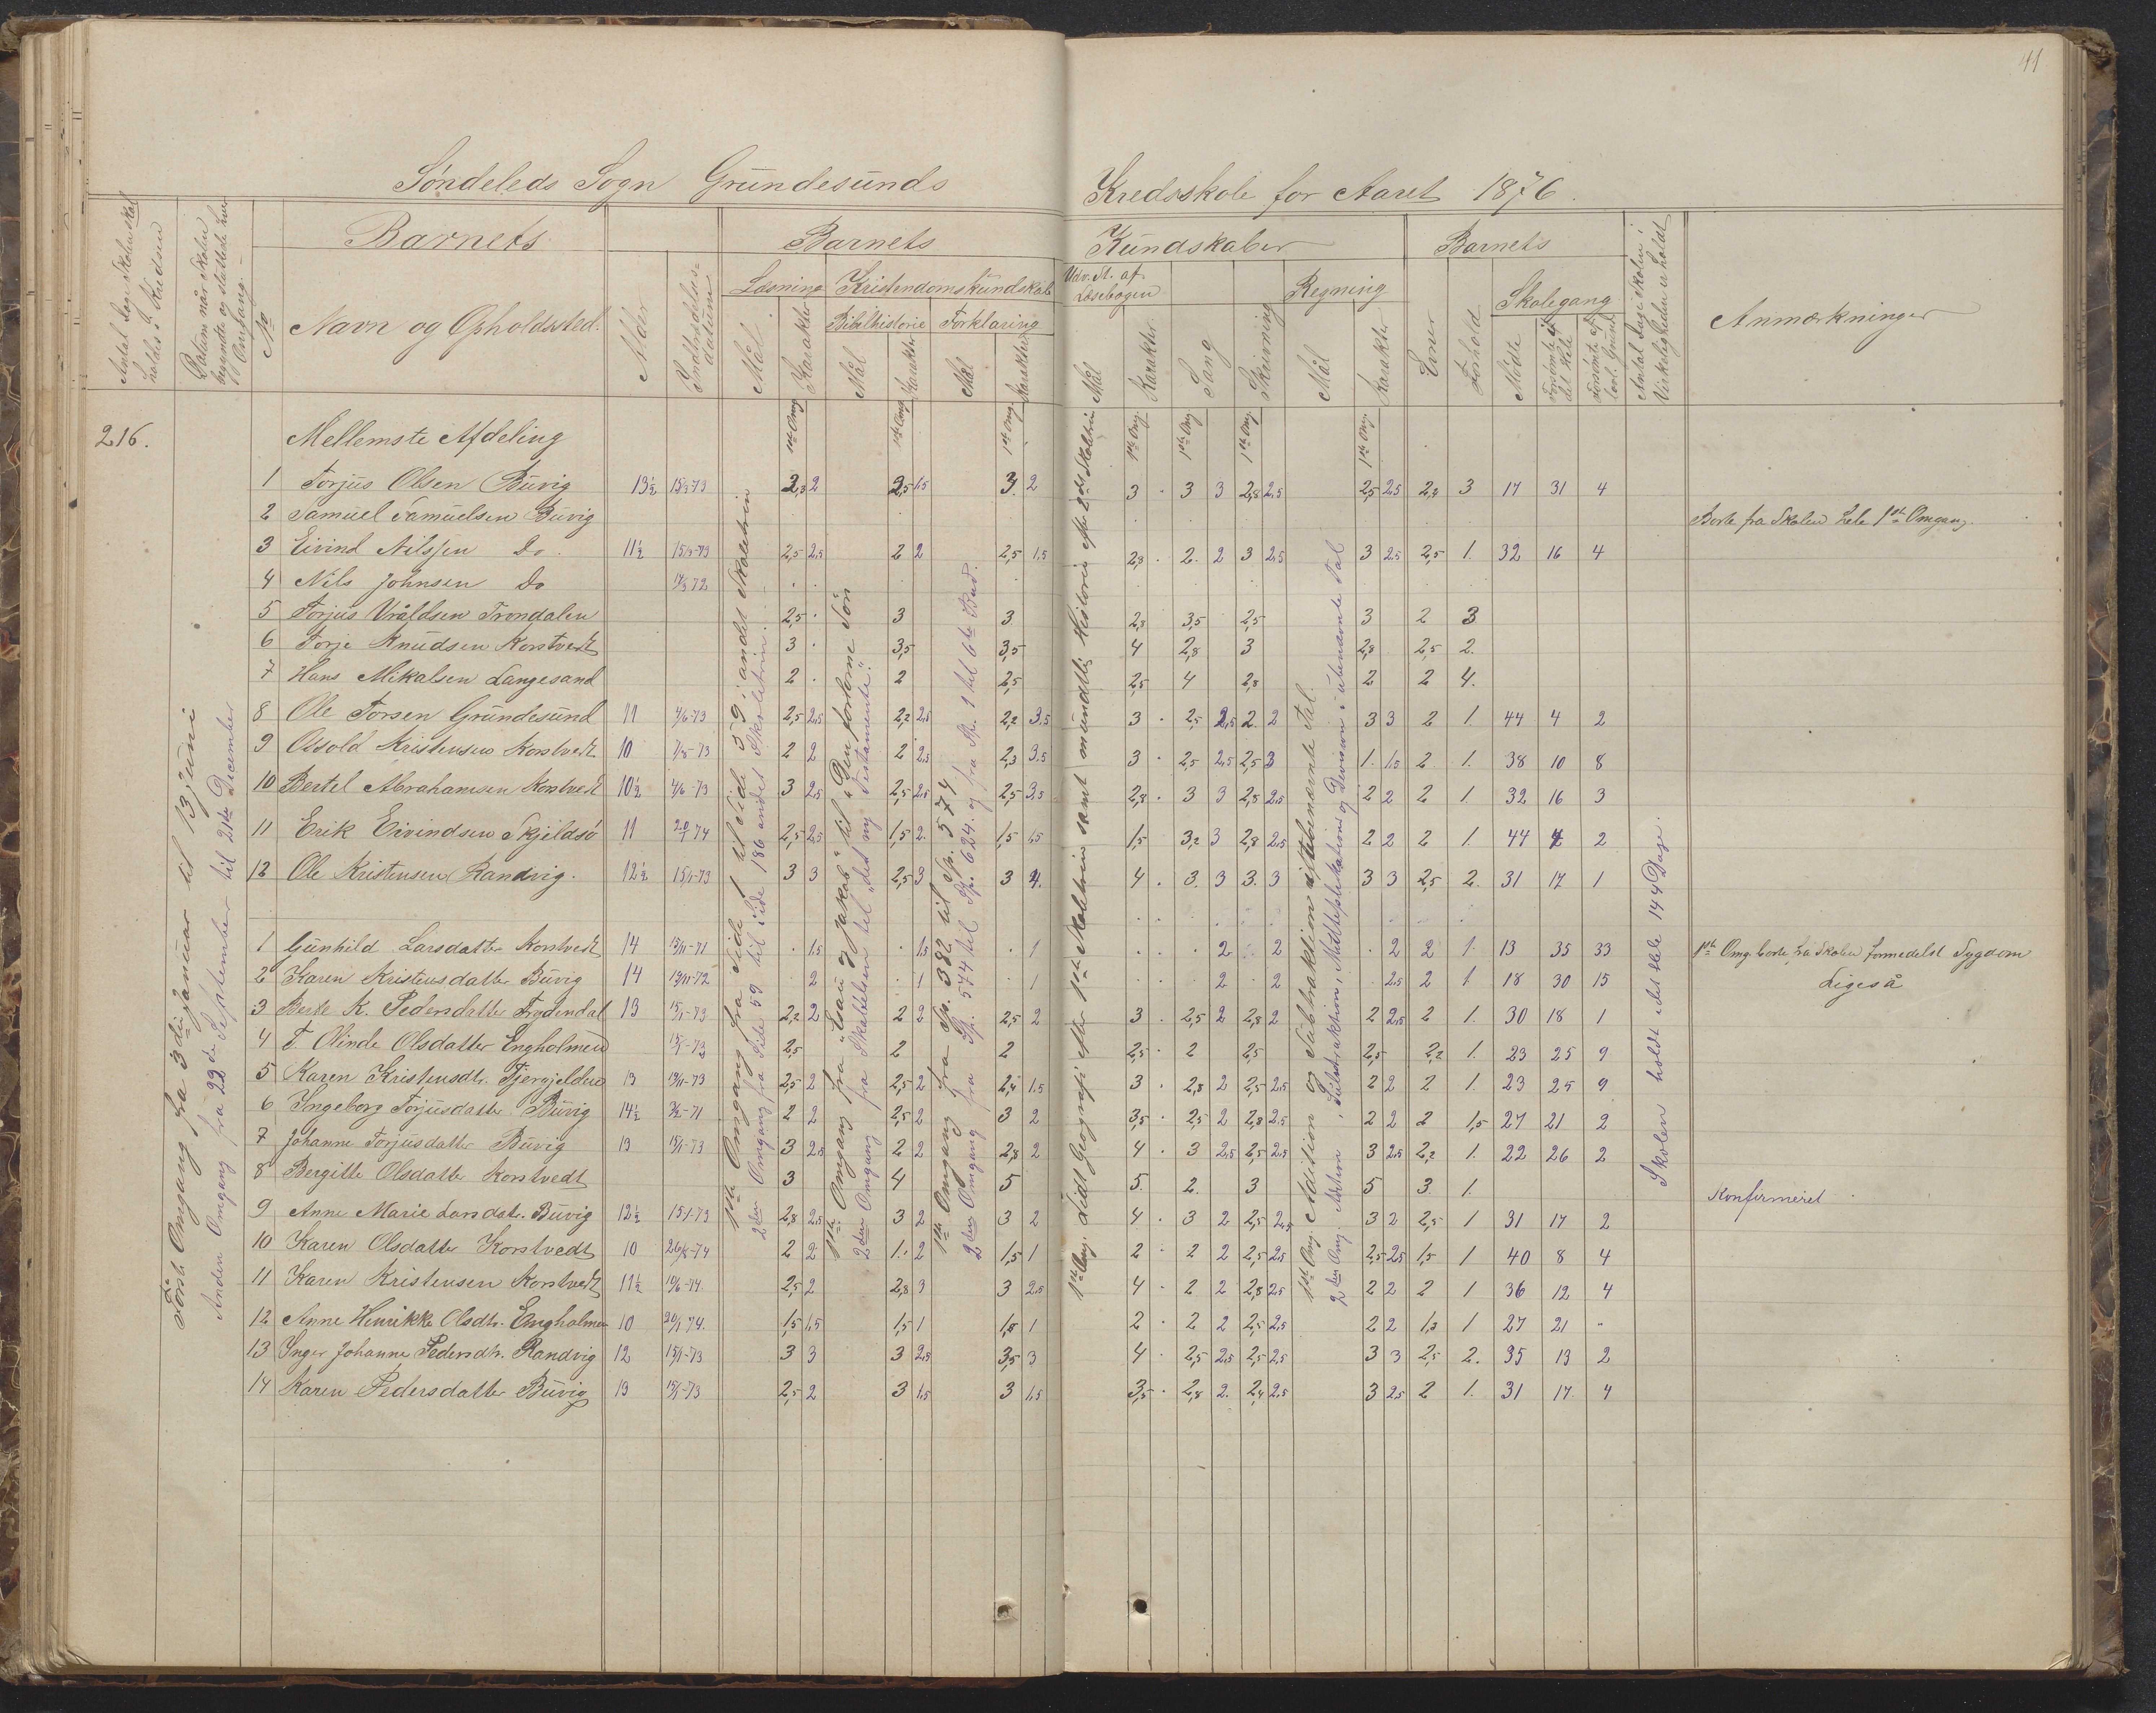 41
Søndeleds Sogn Grundesunds Kredsskole for Aaret 1876.
Antal Dage Skolen skal holdes i Kredsen
Datum når Skolen begyndte og sluttede hver Omgang.
No
Barnets
Navn og Opholdssted.
Alder
Indtrædelsesdatum
Barnets Kundskaber
Læsning Kristendomskundskab
Bibelhistorie Forklaring
Mål Karakter Mål Karakter Mål Karakter
Udv. St. af Læsebogen
Mål Karakter Sang Skrivning
Regning
Mål Karakter
Barnets
Evner Forhold
Skolegang
Mødte Forsømte af det Hele Forsømte af lovl. Grund
Antal Dage Skolen i Virkeligheden er holdt
Anmærkninger
216.
Første Omgang fra 3die Januar til 13 Juni
Anden Omgang fra 22de September til 21de December
1ste Omgang fra Side 1 til Side 59 i andet Skoletrin
2den Omgang fra Side 59 til Side 186 andet Skoletrin.
1ste Omgang fra "Esau og Jakob" til "Den fortorne Søn
2den Omgang fra Skabelsen til "det ny Testamente."
1ste Omgang fra Sp. 382 til Sp. 574
2den Omgang fra Sp. 574 til Sp. 624. og fra Sp. 1 til 6te Bud.
1ste Omg. Lidt Geografi efter 1ste Skoletrin samt mundtlig Historie efter 2det Skoletrin
1ste Omg. Addition og Subtraktion i ubenævnte Tal.
Skolen holdt i det Hele 144 Dage.
Mellemste Afdeling
1 Torjus Olsen Buvig 13½ 15/1-73 2,3 2 2,5 1,5 3. 2 3 · 3 3 2,8 2,5 2,5 2,5 2,2 3 17 31 4
2 Samuel Samuelsen Buvig Borte fra Skolen hele 1ste Omgang.
3 Eivind Nilssen Do. 11½ 15/1-73 2,5 2,5 2 2 2,5 1,5 2,3 · 2. 2 3 2,5 3 2,5 2,5 1. 32 16 4
4 Nils Johnsen Do
5 Torjus Vråldsen Trondalen 2,5 · 3 3 2,8 3,5 2,5 3 2 3
6 Torje Knudsen Korstvedt 3 · 3,5 3,5 4 2,8 3 2,8 2,5 2.
7 Hans Mikalsen Langesand 2 · 2 2,5 2,5 4 2,8 2 2 4.
8 Ole Torsen Grundesund 11 4/6-73 2,5 2,5 2,2 2,5 2,2 3,5 3 · 2,5 2,5 2. 2 3 3 2 1. 44 4 2
9 Osvold Kristensen Korstvedt 10 2 2 2 2,5 2,3 3,5 3 · 2,5 2,5 2,5 3 1. 1,5 2 1. 38 10 8
10 Bertel Abrahamsen Korstvedt 10½ 4/6-73 3 2,5 2,5 2,5 2,5 3,5 2,8 · 3 3 2,8 2,5 2 2 2 1 32 16 3
11 Erik Eivindsen Skjeldsø 11 20/1 74 2,5 2,5 1,5 2. 1,5 1,5 1,5 3,2 3 2,8 2,5 2 2 2 1. 44 4 2
12 Ole Kristensen Randvig. 12½ 15/1-73 3 3 2,5 3 3 4. 4 . 3. 3 3. 3 3 3 2,5 2. 31 17 1
1 Gunhild Larsdatter Korstvedt 14 13/11-71 · 1,5 · 1,5 · 1 · · 2 2 · 2 2 1. 13 35 33 1ste Omg. borte fra Skolen formedelst Sygdom
2 Karen Kristensdatter Buvig 14 19/11-72 2 · 1 · 1 · · 2 · 2 2,5 2 1 18 30 15 Ligeså
3 Berte K. Pedersdatter Frydendal 13 15/1-73 2,2 2 2 2 2,5 2 3 · 2,5 2 2,8 2 2 2,5 2 1. 30 18 1
4 T. Olinde Olsdatter Engholmen 15/1-73 2,5 2 2 2,5 · 2 2,5 2,5 2,2 1. 23 25 9
5 Karen Kristensdtr. 13 2,5 2 2,5 2 2,4 1,5 3 · 2,8 2 2,5 2,5 2 2 2 1. 23 25 9
6 Ingeborg Torjusdatter Buvig 14½ 2 2 2,5 2 3 2 3,5 · 2,5 2 2,8 2,5 2 2 2 1,5 27 21 2
7 Johanne Torjusdatter Buvig 13 15/1-73 3 2,5 2 2 2,8 2 4 · 3 2,5 2,5 2,5 3 2,5 2,2 1. 22 26 2
8 Bergitte Olsdatter Korstvedt 3 4 5 5. 2. 3 5 3. 1. Konfirmeret
9 Anne Marie Larsdatr. Buvig 12½ 15/1-73 2,8 2,5 3 2 3 2 4 · 3 2 2,5 2,5 3 2 2,5 1 31 17 2
10 Karen Olsdatter Korstvedt 10 26/8-74 2 2 1. 2 1,5 1 2 · 2 2 2,5 2,5 2,5 2,5 1,5 1 40 8 4
11 Karen Kristensen Korstvedt 11½ 10/6-74. 2,5 2 2,8 3 3 2,5 4 · 2 2 2,8 2,5 2 2 2 1 36 12 4
12 Anne Henrikke Olsdtr. Engholmen 10 20/1 74. 1,5 1,5 1,5 1 1,5 1 2 · 2 2 2,5 2,5 2 2 1,3 1 27 21 "
13 Inger Johanne Pedersdtr. Randvig 12 15/1-73 3 3 3 2,5 3,5 3 4 · 2,5 2,5 2,5 2,5 3 3 2,5 2. 35 13 2
14 Karen Pedersdatter Buvig 13 15/1-73 2,5 2 3 1,5 3 1,5 3,5 · 2,8 2. 2,4 2,5 3 2,5 2 1. 31 17. 4